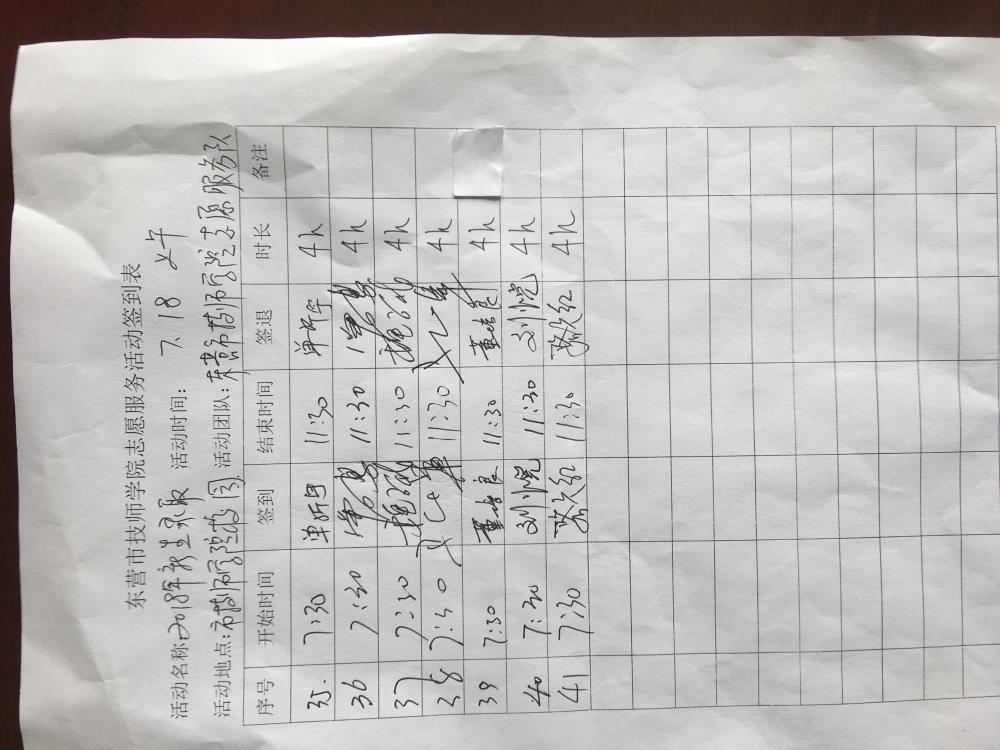 东营市技师学院志愿服务活动签到表
活动名称2018年新生录取 活动时间: 7. 18 上午
活动地点:市技师学院校园 活动团队:东营市技师学院志愿服务队
序号 开始时间 签到 结束时间 签退 时长 备注
35. 7:30 单昕宇 11:30 单昕宇 4h
36 7:30 11:30 4h
37 7:30 11:30 4h
38 7:30 11:30 4h
39 7:30 董吉良 11:30 董吉良 4h
40 7:30 刘悦 11:30 刘悦 4h
41 7:30 11:30 4h